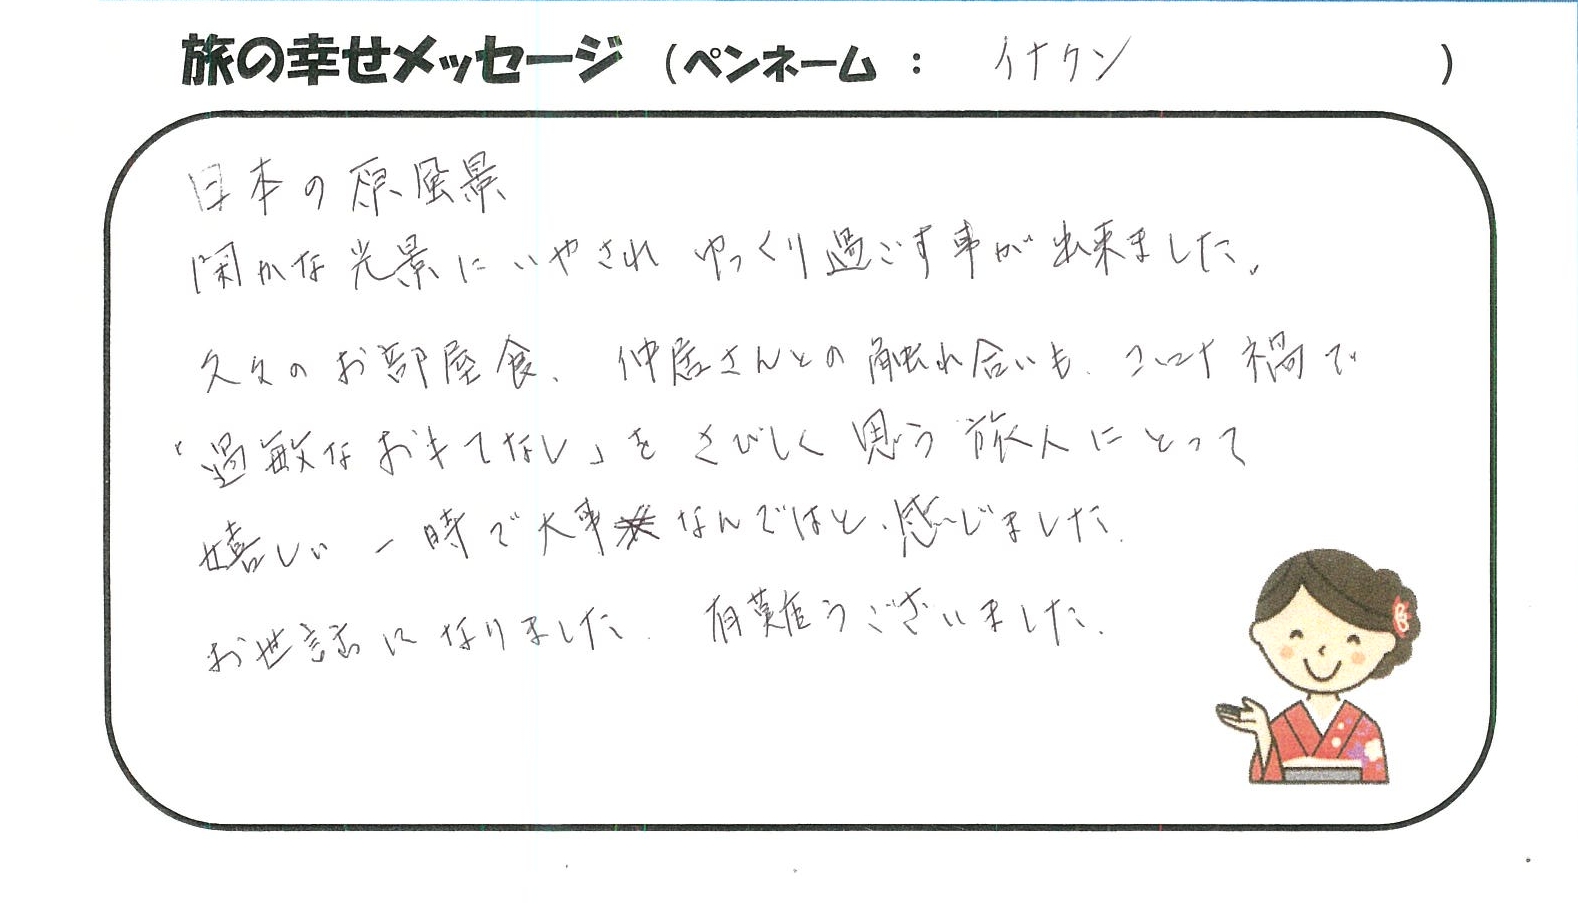 旅の幸せメッセージ（ペンネーム： イナクン ）
日本の原風景
閑かな光景にいやされ ゆっくり過ごす事が出来ました。
久々のお部屋食、仲居さんとの触れ合いも、コロナ禍で
「過敏なおもてなし」をさびしく思う旅人にとって
嬉しい一時で大事なんではと、感じました。
お世話になりました。有難うございました。